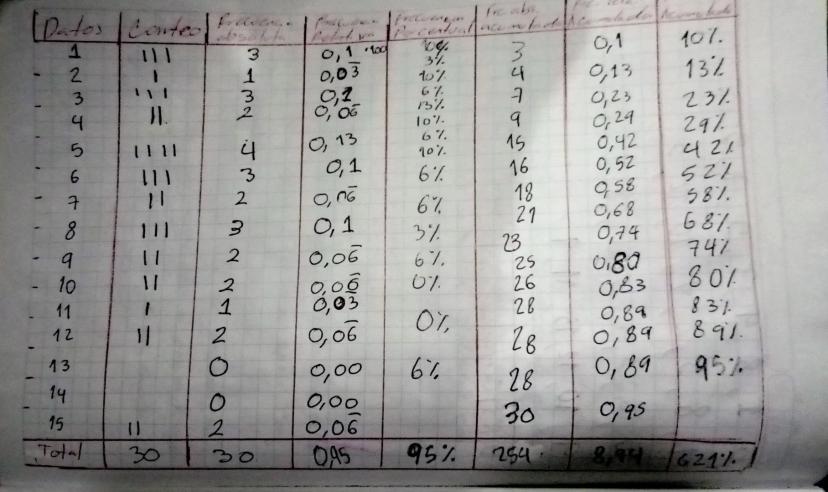 Datos Conteo Frecuencia absoluta Frecuencia Relativa Frecuencia Porcentual Frc abs acumulada Acumulada Acumulada
1 III 3 0,1 10% 3 0,1 10%
- 2 I 1 0,03 3% 4 0,13 13%
3 III 3 0,1 10% 7 0,23 23%
- 4 II 2 0,06 6% 9 0,29 29%
5 IIII 4 0,13 13% 15 0,42 42%
- 6 III 3 0,1 10% 16 0,52 52%
- 7 II 2 0,06 6% 18 0,58 58%
- 8 III 3 0,1 10% 21 0,68 68%
- 9 II 2 0,06 6% 23 0,74 74%
- 10 II 2 0,06 6% 25 0,80 80%
- 11 I 1 0,03 3% 26 0,83 83%
- 12 II 2 0,06 6% 28 0,89 89%
- 13 0 0,00 0% 28 0,89
- 14 0 0,00 0% 28 0,89
- 15 II 2 0,06 6% 30 0,95 95%
Total 30 30 0,95 95% 254 8,94 621%